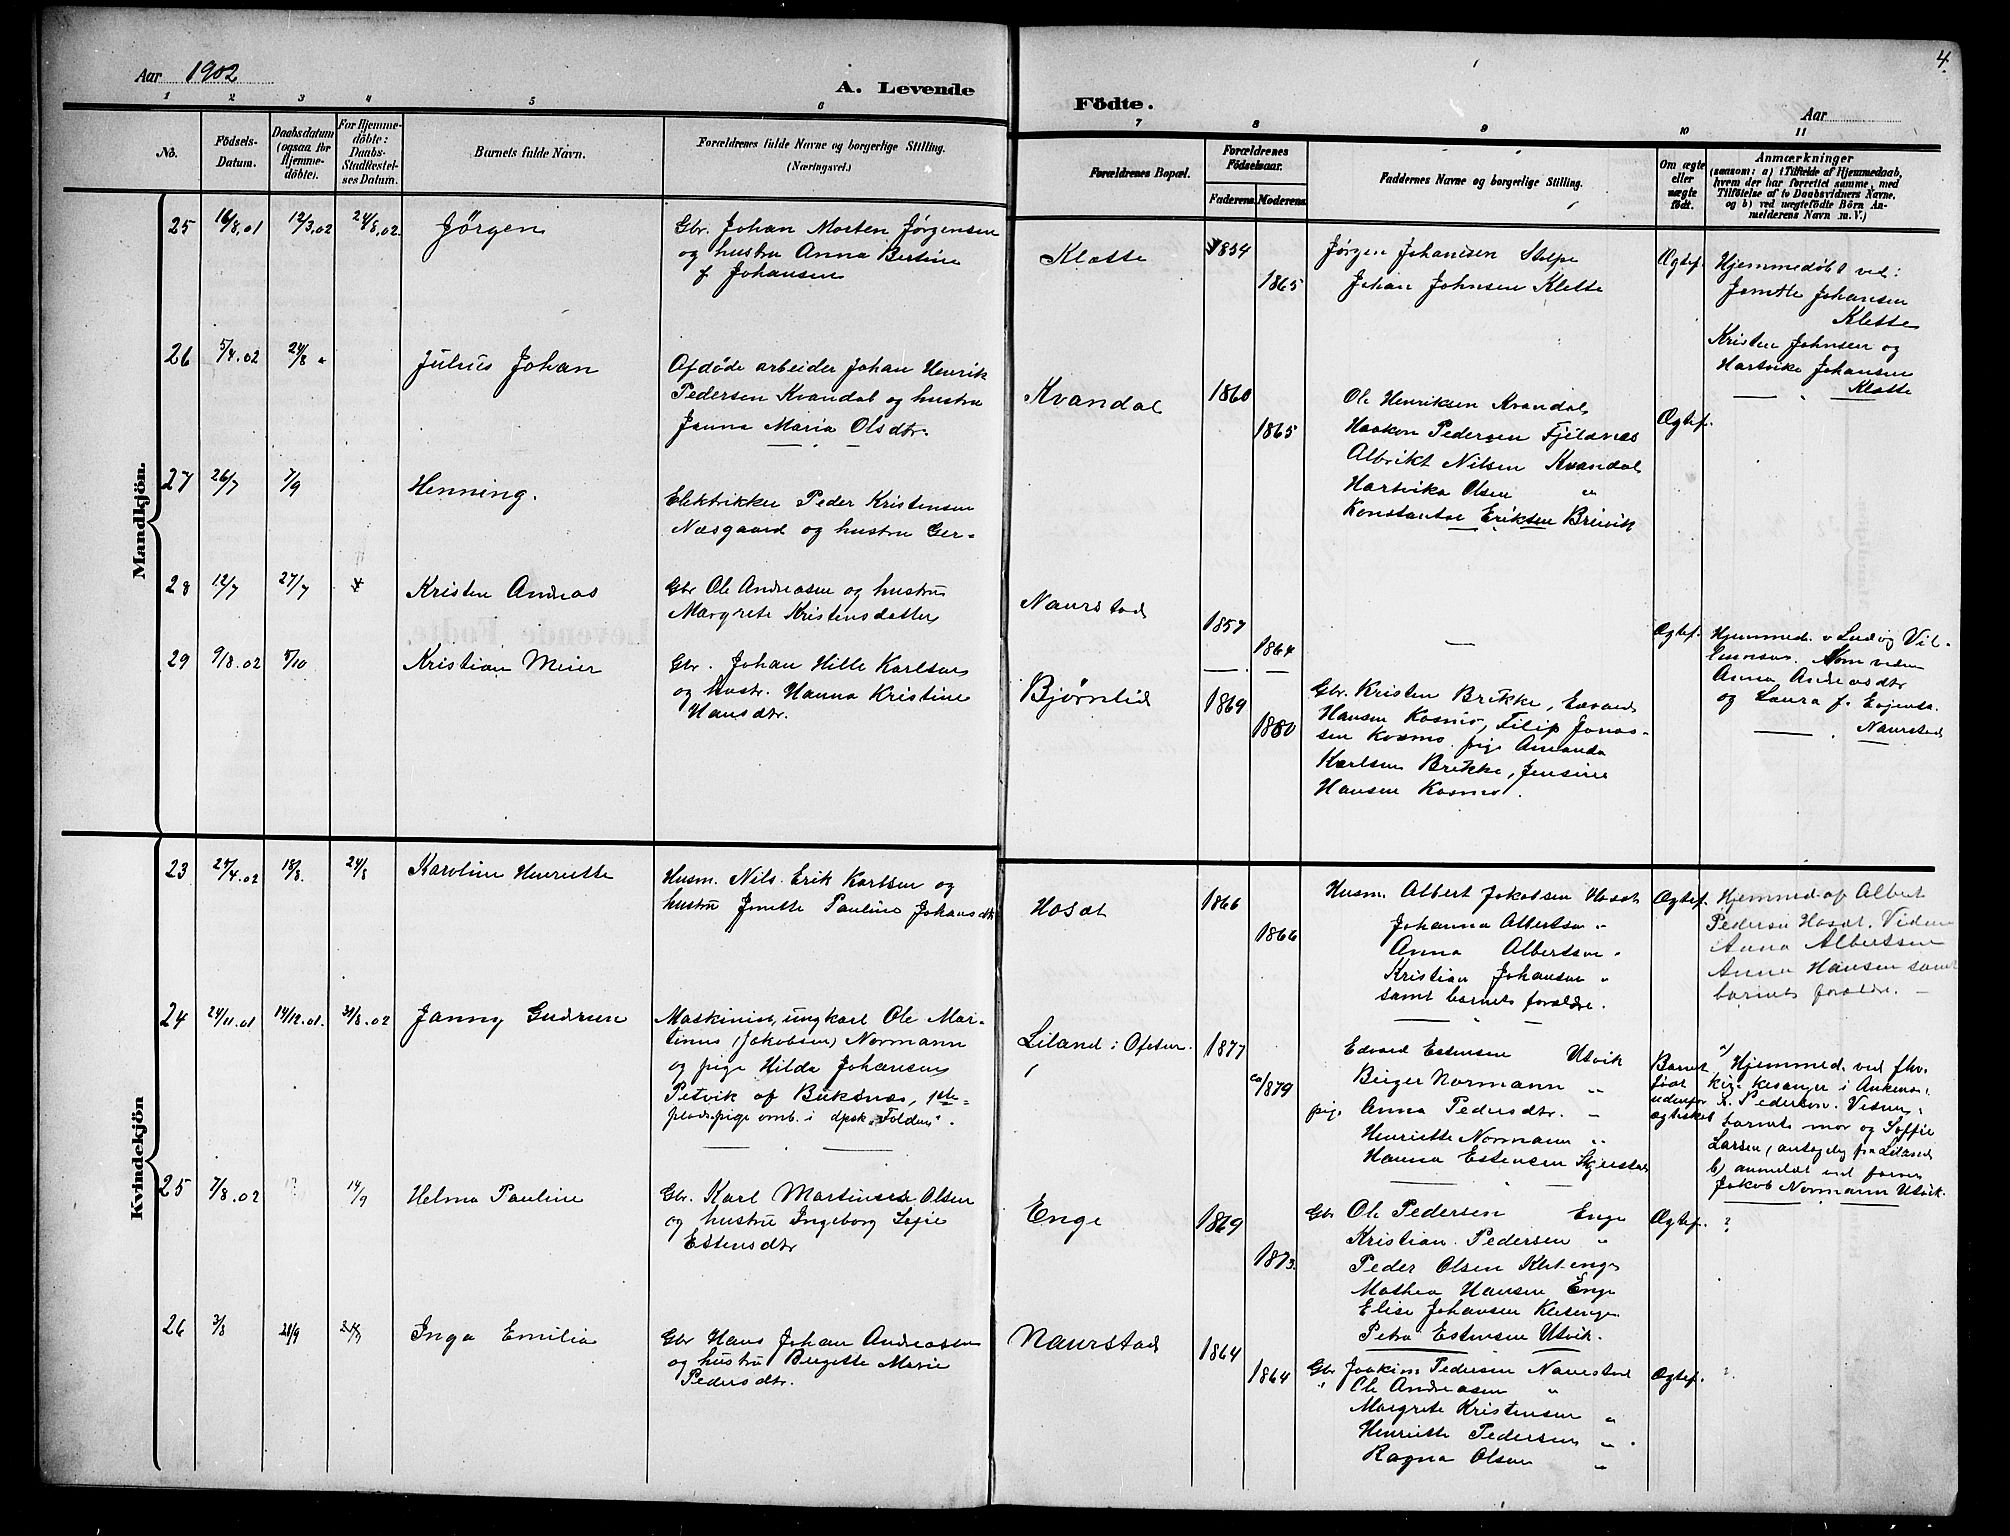 Aar 1902
A. Levende
Födte.
Aar
4.
1 2 3 4 5 6 7 8 9 10 11
No.
Födsels-
Datum.
Daabsdatum
(ogsaa for
Hjemme-
döbte).
For Hjemme-
döbte:
Daabs-
Stadfæstel-
ses Datum.
Barnets fulde Navn.
Forældrenes fulde Navne og borgerlige Stilling.
(Næringsvei.)
Forældrenes Bopæl.
Forældrenes
Födselsaar.
Faderens. Moderens.
Faddernes Navne og borgerlige Stilling.
Om ægte
eller
uægte
födt.
Anmærkninger
(saasom: a) i Tilfælde af Hjemmedaab,
hvem der har forrettet samme, med
Tilföielse af to Daabsvidners Navne,
og b) ved uægtefödte Börn An-
melderens Navn m. V.)
Mandkjön.
25 16/8.01 12/3.02 24/8.02. Jørgen
Gbr. Johan Morten Jørgensen
og hustru Anna Bertine
f. Johansen
Klætte 1854
1865
Jørgen Johansen Stolpe
Johan Johnsen Klette
Ægtef.
Hjemmedøbt ved:
Johansen
Klette
Kristen Johnsen og
Hartvike Johansen
Klætte
26 5/4.02 24/8 " Julius Johan
Afdøde arbeider Johan Henrik
Pedersen Kvandal og hustru
Janna Maria Olsdtr.
Kvandal 1860
1865
Ole Henriksen Kvandal
Haakon Pedersen Fjeldnæs
Albrikt Nilsen Kvandal
Hartvika Olsen "
Konstantse Eriksen Breivik
Ægtef.
27 26/7 7/9 Henning.
Elektrikker Peder Kristensen
Næsgaard og hustru Ger-
28 12/7 27/7 Kristen Andreas
Gbr Ole Andreasen og hustru
Margrete Kristensdatter
Naurstad 1857
1864
Ægtef.
Hjemmed. v Ludvig Vil-
Anna Andreasdtr
og Laura f.
Naurstad
29 9/8.02 5/10 Kristian Meier
Gbr. Johan Hille Karlsen
og hustr. Hanna Kristine
Hansdtr.
Bjørnlid 1869
1880
Gbr. Kristen Brekke, Edvard
Hansen Kosmo, Filip Jonas-
sen Kosmo. pige Amanda
Karlsen Brekke, Jensine
Hansen Kosmo.
Kvindekjön
23 24/4.02 18/8. 24/8 Karoline Henriette
Husm. Nils Erik Karlsen og
hustru Jonette Pauline Johansdtr
Hosdt 1866
1866
Husm. Albert Jakobsen Hosdt
Johanna Albertsen "
Anna Albertsen "
Kristian Johansen "
samt barnets forældre.
Ægtef.
Hjemmed. af Albert
Pedersen Hosdt. Vidner
Anna Albertsen
Anna Hansen samt
barnets forældre. —
24 24/11.01 14/12.01. 31/8.02 Janny Gudrun
Maskinist, ungkarl Ole Mar-
tinus (Jakobsen) Normann
og pige Hilda Johansen
Petvik af Buksnæs,
omb. i dpsk. "Folden".
Liland i Ofoten. 1877
ca 1879
Edvard Estensen Utvik
Birger Normann "
pige Anna Pedersdtr. "
Henriette Normann "
Hanna Estensen Skjerstad
Barnet
født
udenfor
ægteskab
a) Hjemmed. ved fhv.
kirkesanger i Ankenes
K. Pedersen. Vidner:
barnets mor og Soffie
Larsen, antagelig fra Liland
b) anmeldt ved farfar
Jakob Normann Utvik.
25 7/8.02 14/9 Helma Pauline
Gbr. Karl Martinus Olsen
og hustru Ingeborg Sofie
Estensdtr
Enge 1869
1873.
Gbr Ole Pedersen Enge
Kristian Pedersen "
Peder Olsen Kletenge
Mathea Hansen Enge
Elise Johansen Kletenge
Petra Estensen Utvik.
Ægtef. ?
26 3/8 21/9 Inga Emilie
Gbr Hans Johan Andreasen
og hustru Birgitte Marie
Pedersdtr.
Naurstad 1864
1864
Gbr Joakim Pedersen Naurstad
" Ole Andreasen "
Margrete Kristensen "
Henriette Pedersen "
Ragna Olsen "
Ægtef. ?